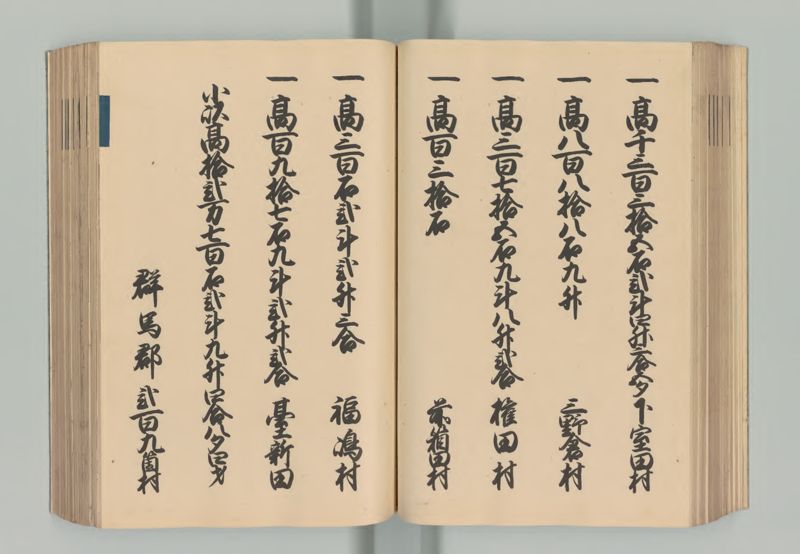 一 高千三百三拾五石弐斗四升三合五夕 下室田村
一 高八百八拾八石九升 三野倉村
一 高三百七拾五石九斗八升弐合 権田村
一 高百三拾石 萩箱田村
一 高三百石弐斗弐升三合 福嶋村
一 高百九拾七石九斗弐升弐合 臺新田
小以高拾弐万七百石弐斗九升四合八夕四才
群馬郡 弐百九箇村